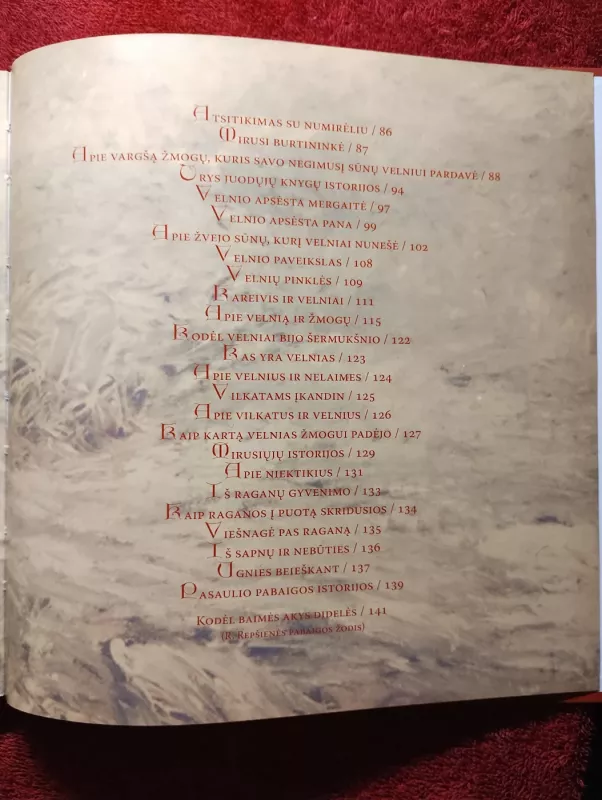 Atsitikimas su numirėliu / 86
Mirusi burtininkė / 87
Apie vargšą žmogų, kuris savo negimusį sūnų velniui pardavė / 88
Trys juodųjų knygų istorijos / 94
Velnio apsėsta mergaitė / 97
Velnio apsėsta pana / 99
Apie žvejo sūnų, kurį velniai nunešė / 102
Velnio paveikslas / 108
Velnių pinklės / 109
Kareivis ir velniai / 111
Apie velnią ir žmogų / 115
Kodėl velniai bijo šermukšnio / 122
Kas yra velnias / 123
Apie velnius ir nelaimes / 124
Vilkatams įkandin / 125
Apie vilkatus ir velnius / 126
Kaip kartą velnias žmogui padėjo / 127
Mirusiųjų istorijos / 129
Apie niektikius / 131
Iš raganų gyvenimo / 133
Kaip raganos į puotą skridusios / 134
Viešnagė pas raganą / 135
Iš sapnų ir nebūties / 136
Ugnies beieškant / 137
Pasaulio pabaigos istorijos / 139
Kodėl baimės akys didelės / 141
(R. Repšienės pabaigos žodis)